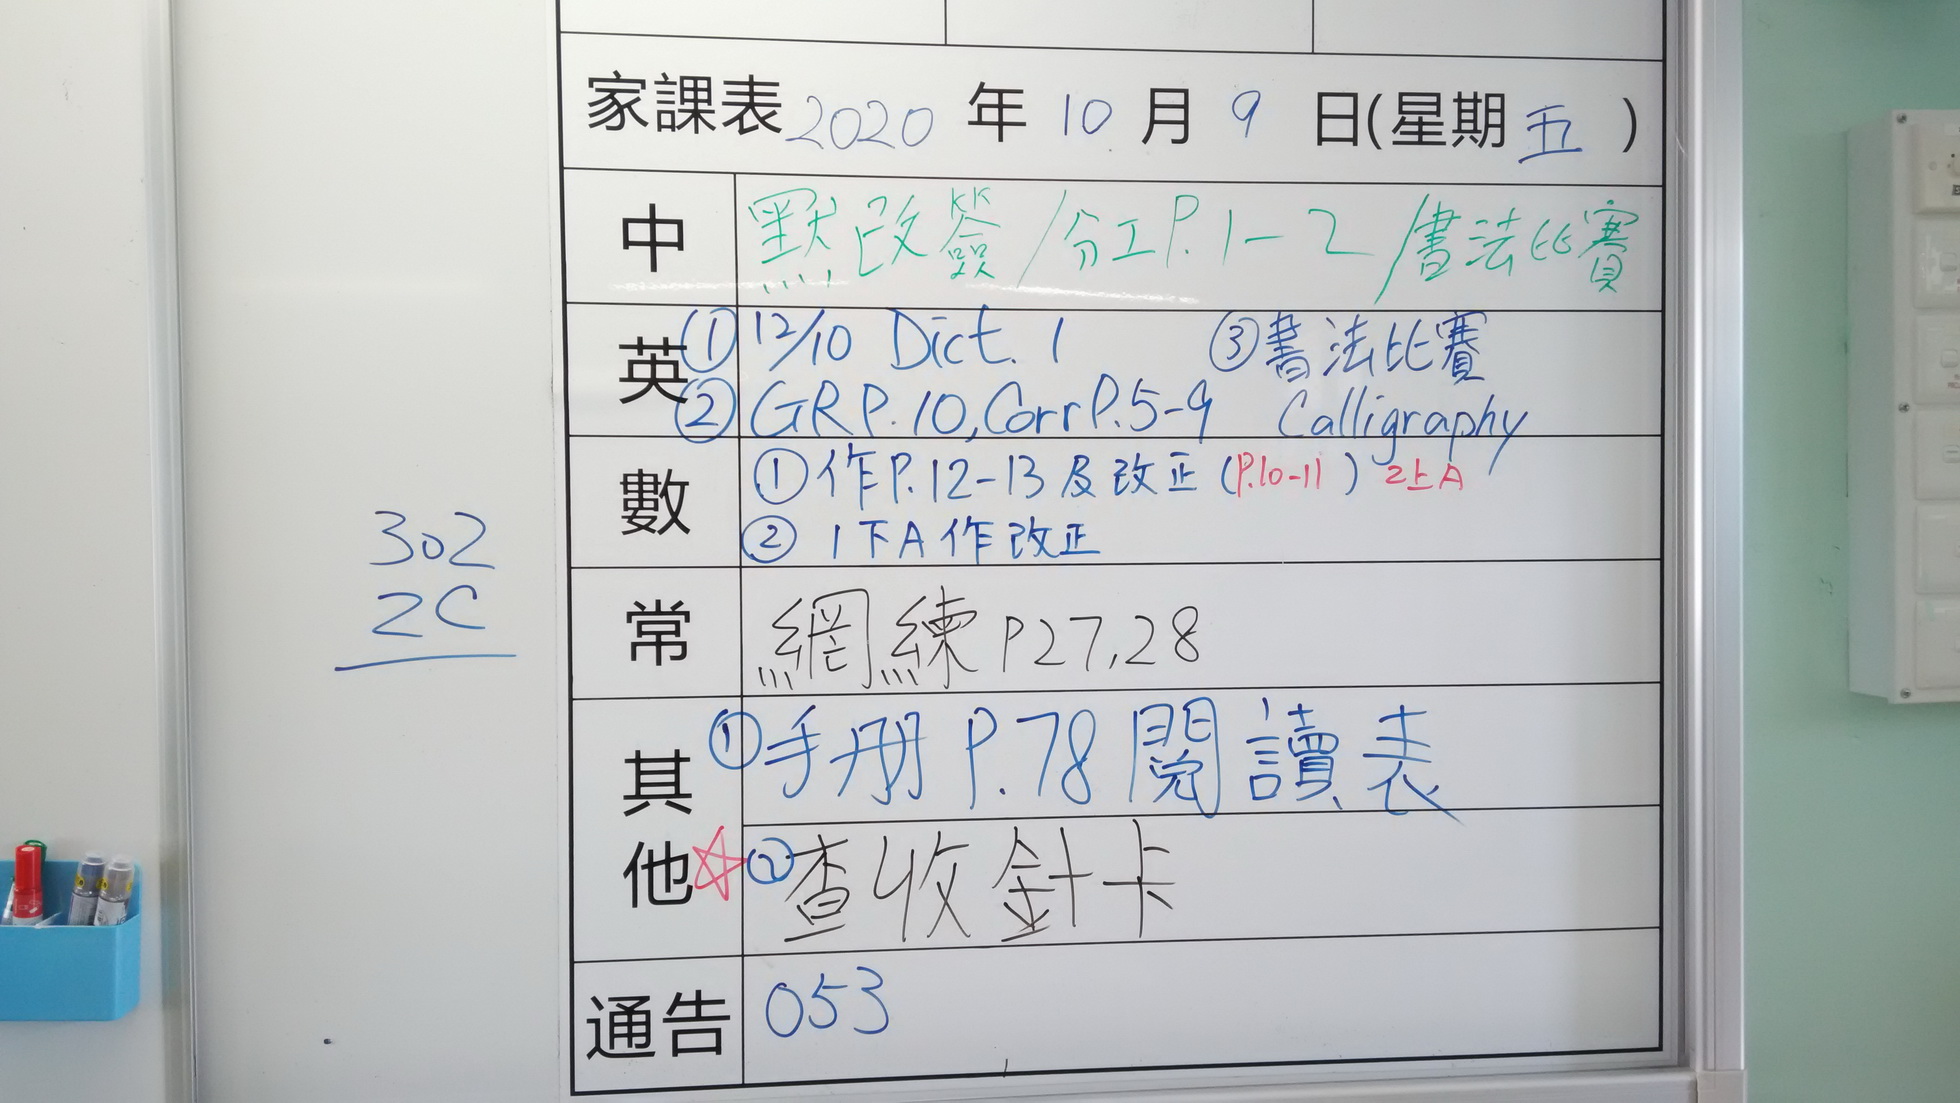 家課表 2020 年 10 月 9 日(星期 五 )
中 默改簽/分工P.1-2/書法比賽
英 ① 12/10 Dict. 1 ③書法比賽
② GR P.10, Corr P.5-9 Calligraphy
數 ① 作P.12-13及改正(P.10-11) 2上A
② 1下A作改正
302
2C
常 網練 P27,28
其他 ① 手册 P.78 閱讀表
☆② 查收針卡
通告 053